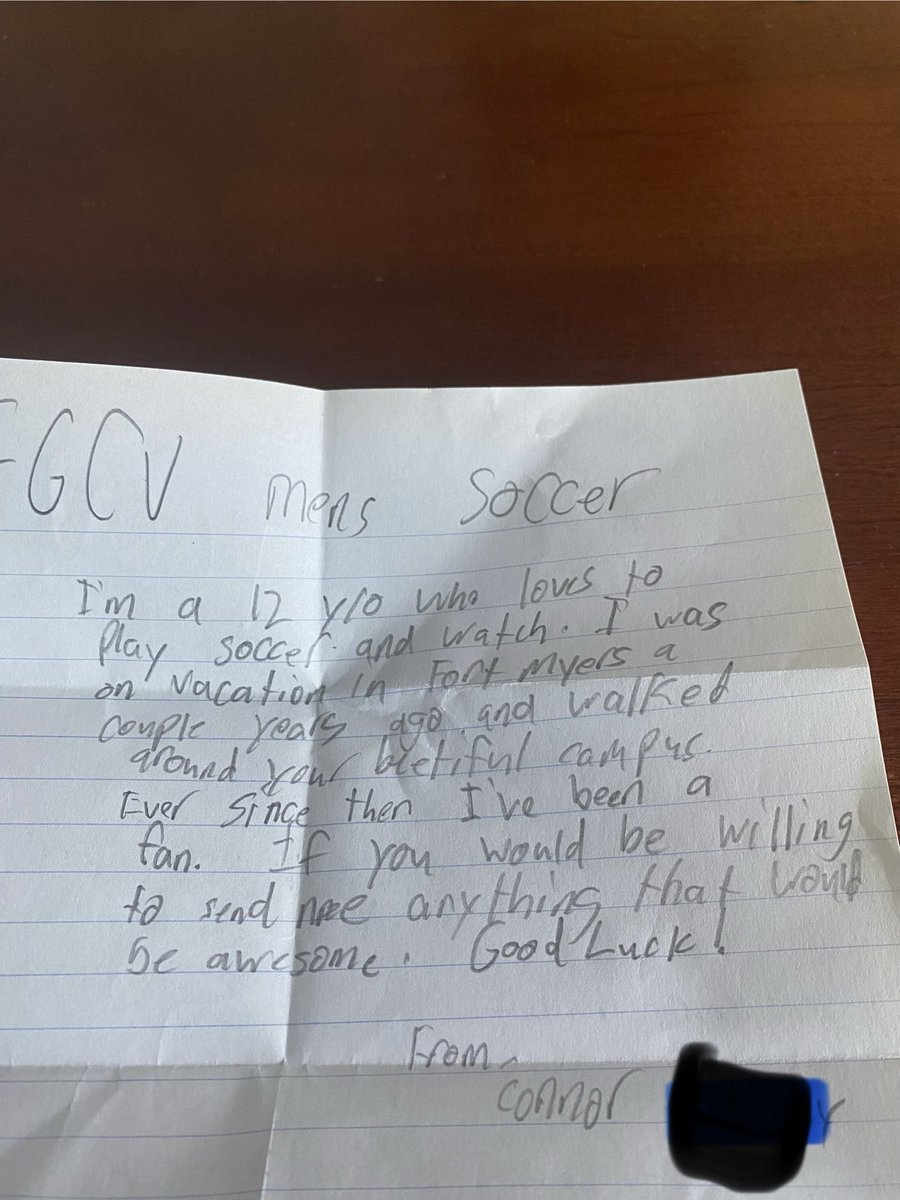 FGCV mens soccer
I'm a 12 y/o who loves to
play soccer and watch. I was
on vacation in Fort Myers a
couple years ago and walked
around your bietiful campus.
Ever since then I've been a
fan. If you would be willing
to send me anything that would
be awesome. Good Luck!
From,
connor